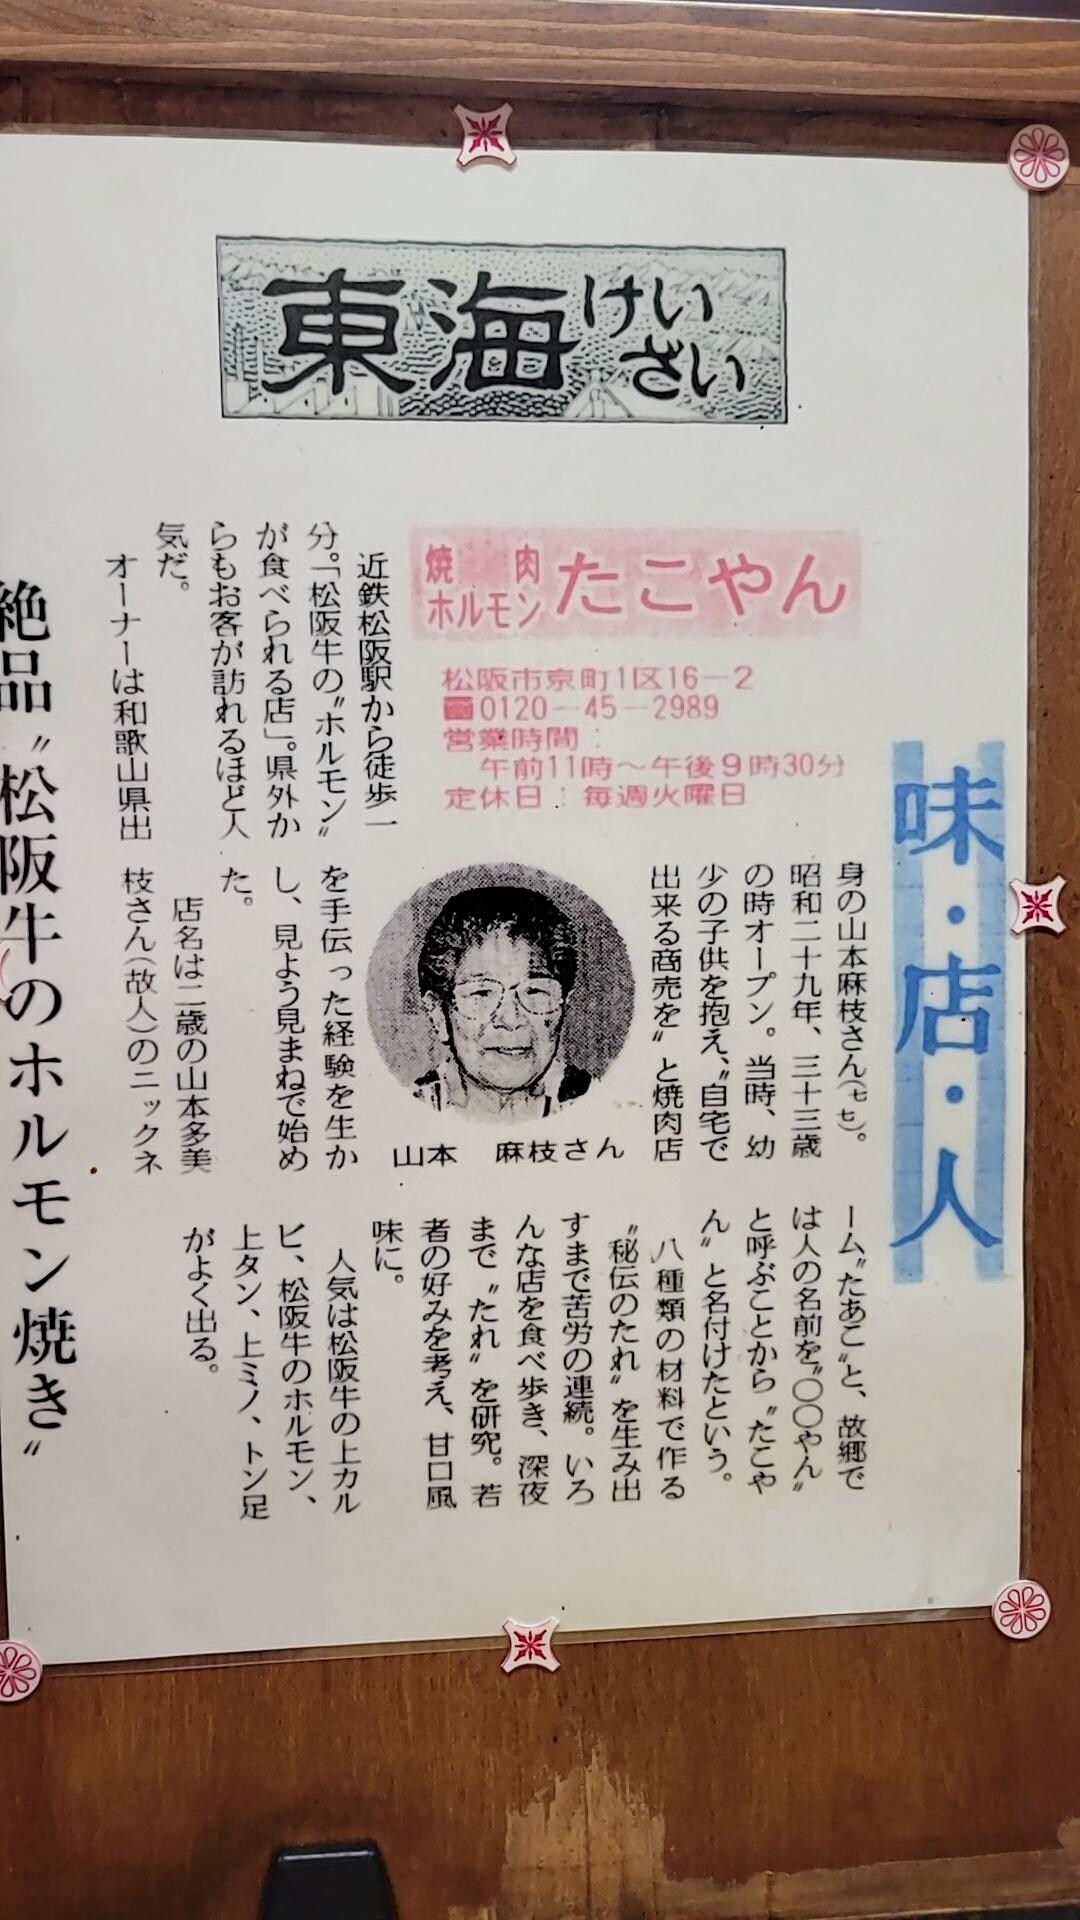 東海けいざい
味・店・人
焼肉
ホルモン
たこやん
松阪市京町1区16－2
☎0120－45－2989
営業時間：
午前11時～午後9時30分
定休日：毎週火曜日
近鉄松阪駅から徒歩一
分。「松阪牛の〝ホルモン〟
が食べられる店」。県外か
らもお客が訪れるほど人
気だ。
オーナーは和歌山県出
身の山本麻枝さん（七七）。
昭和二十九年、三十三歳
の時オープン。当時、幼
少の子供を抱え、〝自宅で
出来る商売を〟と焼肉店
を手伝った経験を生か
し、見よう見まねで始め
た。
店名は二歳の山本多美
枝さん（故人）のニックネ
ーム〝たあこ〟と、故郷で
は人の名前を〝〇〇やん〟
と呼ぶことから〝たこや
ん〟と名付けたという。
八種類の材料で作る
〝秘伝のたれ〟を生み出
すまで苦労の連続。いろ
んな店を食べ歩き、深夜
まで〝たれ〟を研究。若
者の好みを考え、甘口風
味に。
人気は松阪牛の上カル
ビ、松阪牛のホルモン、
上タン、上ミノ、トン足
がよく出る。
山本　麻枝さん
絶品〝松阪牛のホルモン焼き〟